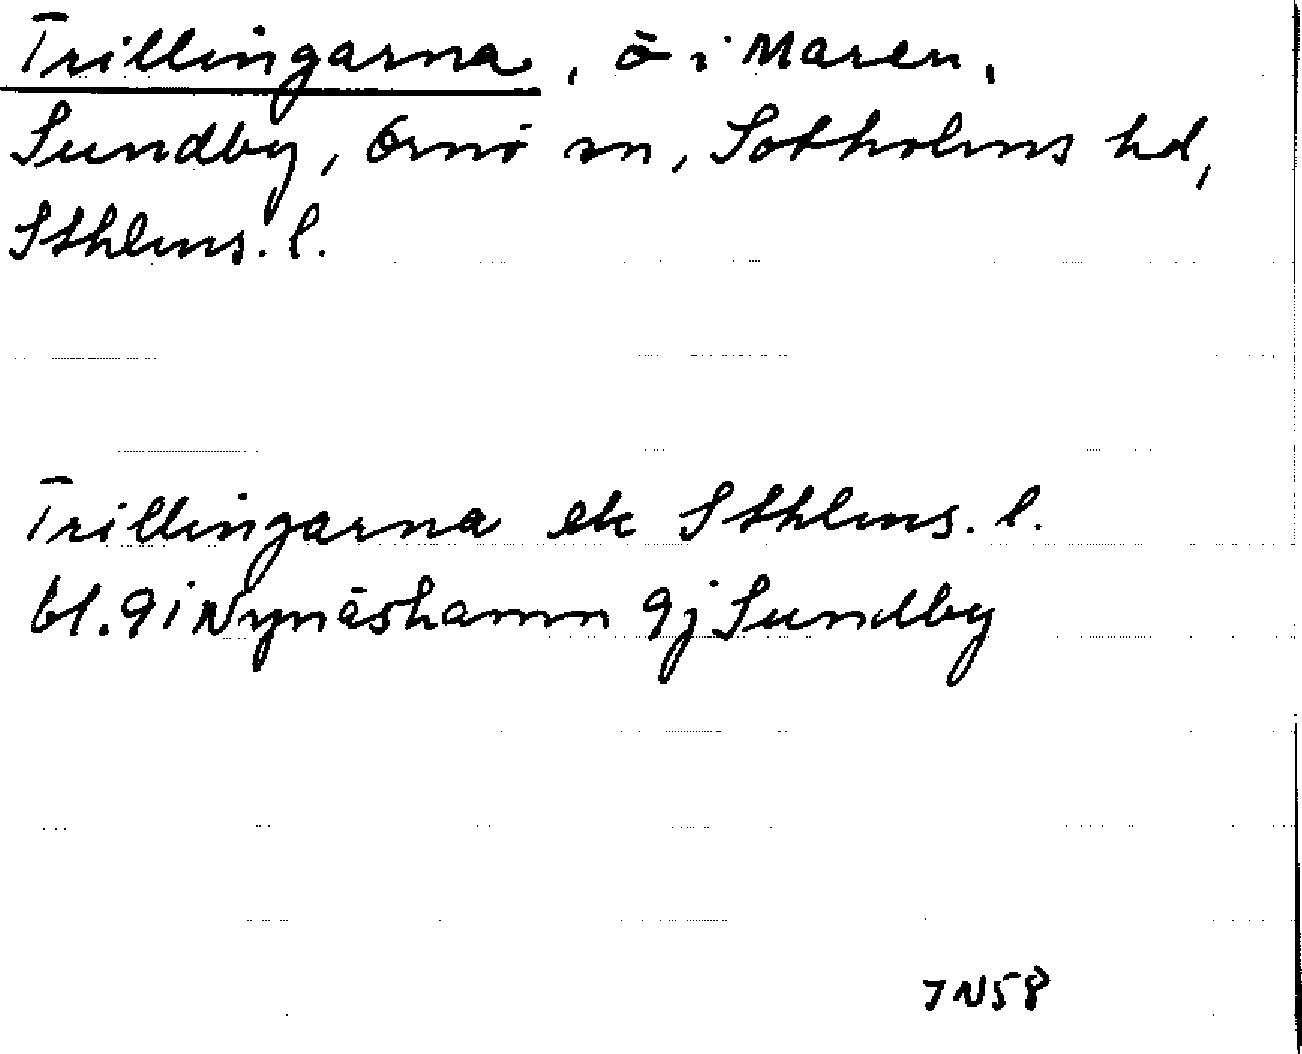 Trillingarna, ö i Maren,
Sundby, Ornö sn, Sotholms hd,
Sthlms. l.
Trillingarna ek Sthlms. l.
bl. 9 i Nynäshamn 9j Sundby
JN58